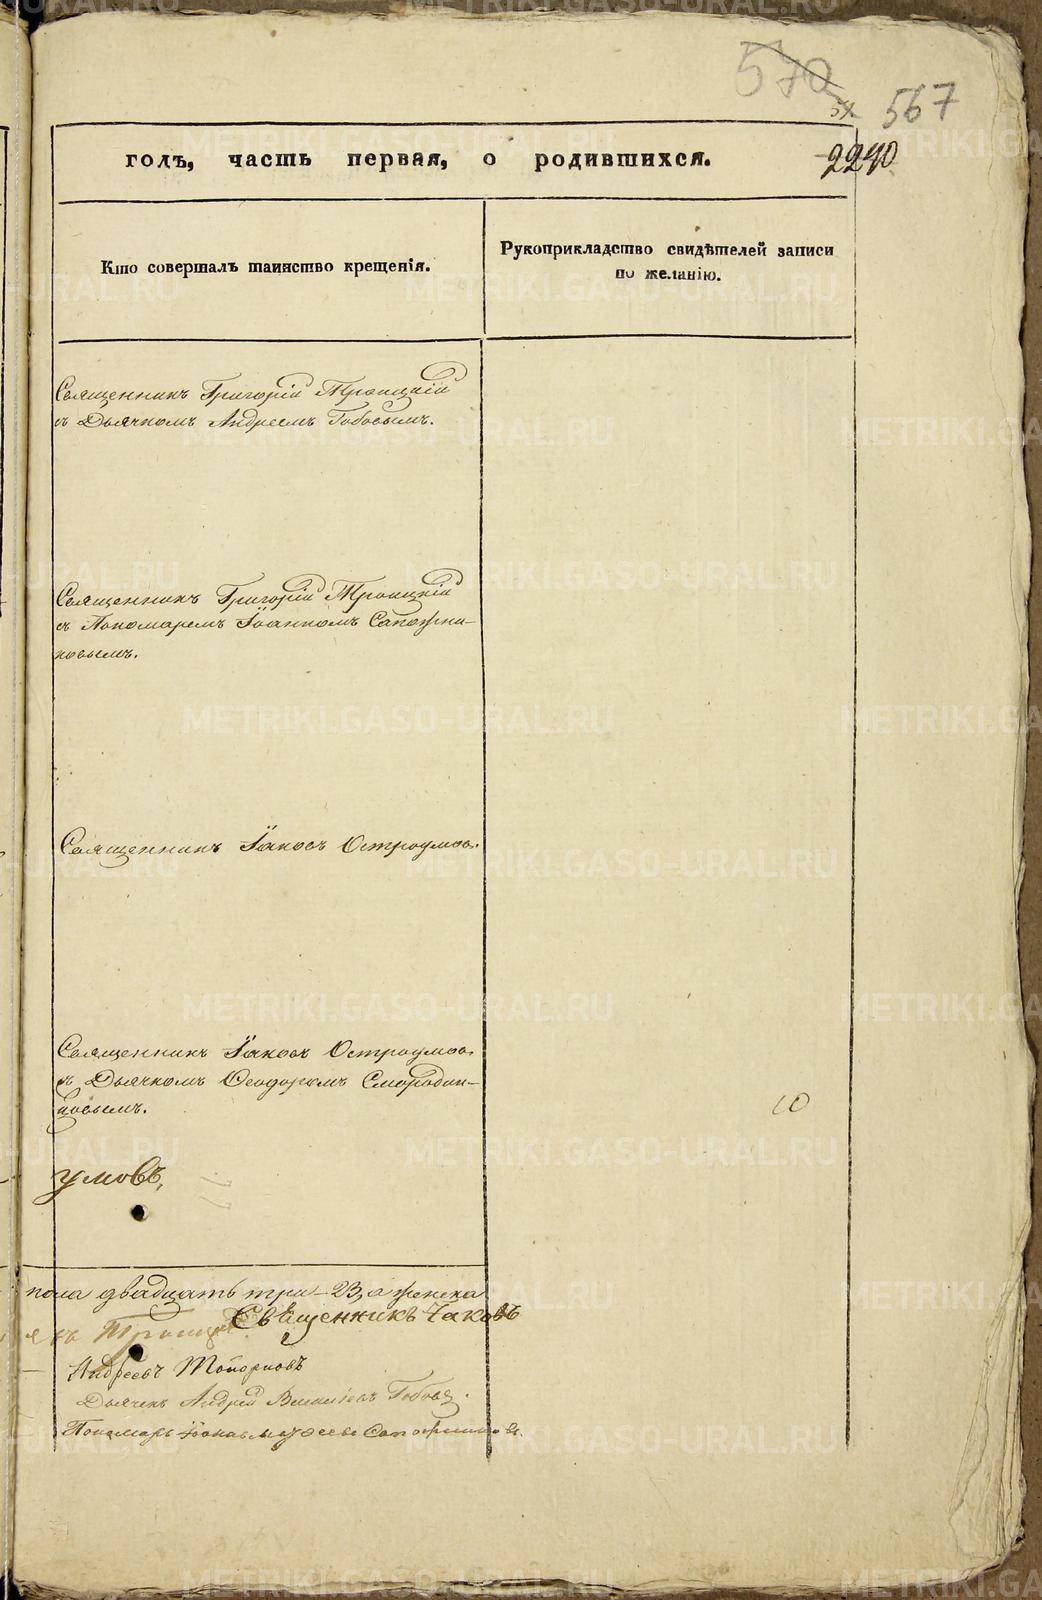 570
567
2240
годъ, часть первая, о родившихся.
Кто совершалъ таинство крещенія.
Рукоприкладство свидѣтелей записи
по желанію.
Священникъ Григорій Троицкій
съ Дьячкомъ Андреемъ Бобовымъ.
Священникъ Григорій Троицкій
съ Пономаремъ Іоанномъ Сапожни-
ковымъ.
Священникъ Іаковъ Остроумов.
Священникъ Іаковъ Остроумов.
съ Дьячкомъ Ѳеодоромъ Смородин-
ковымъ.
10
умовъ,
пола двадцать три - 23, а женска
Священникъ Іаковъ
Троицкій
Андреевъ Топорковъ
Дьячек Андрей
Пономарь Сапожников.
METRIKI.GASO-URAL.RU